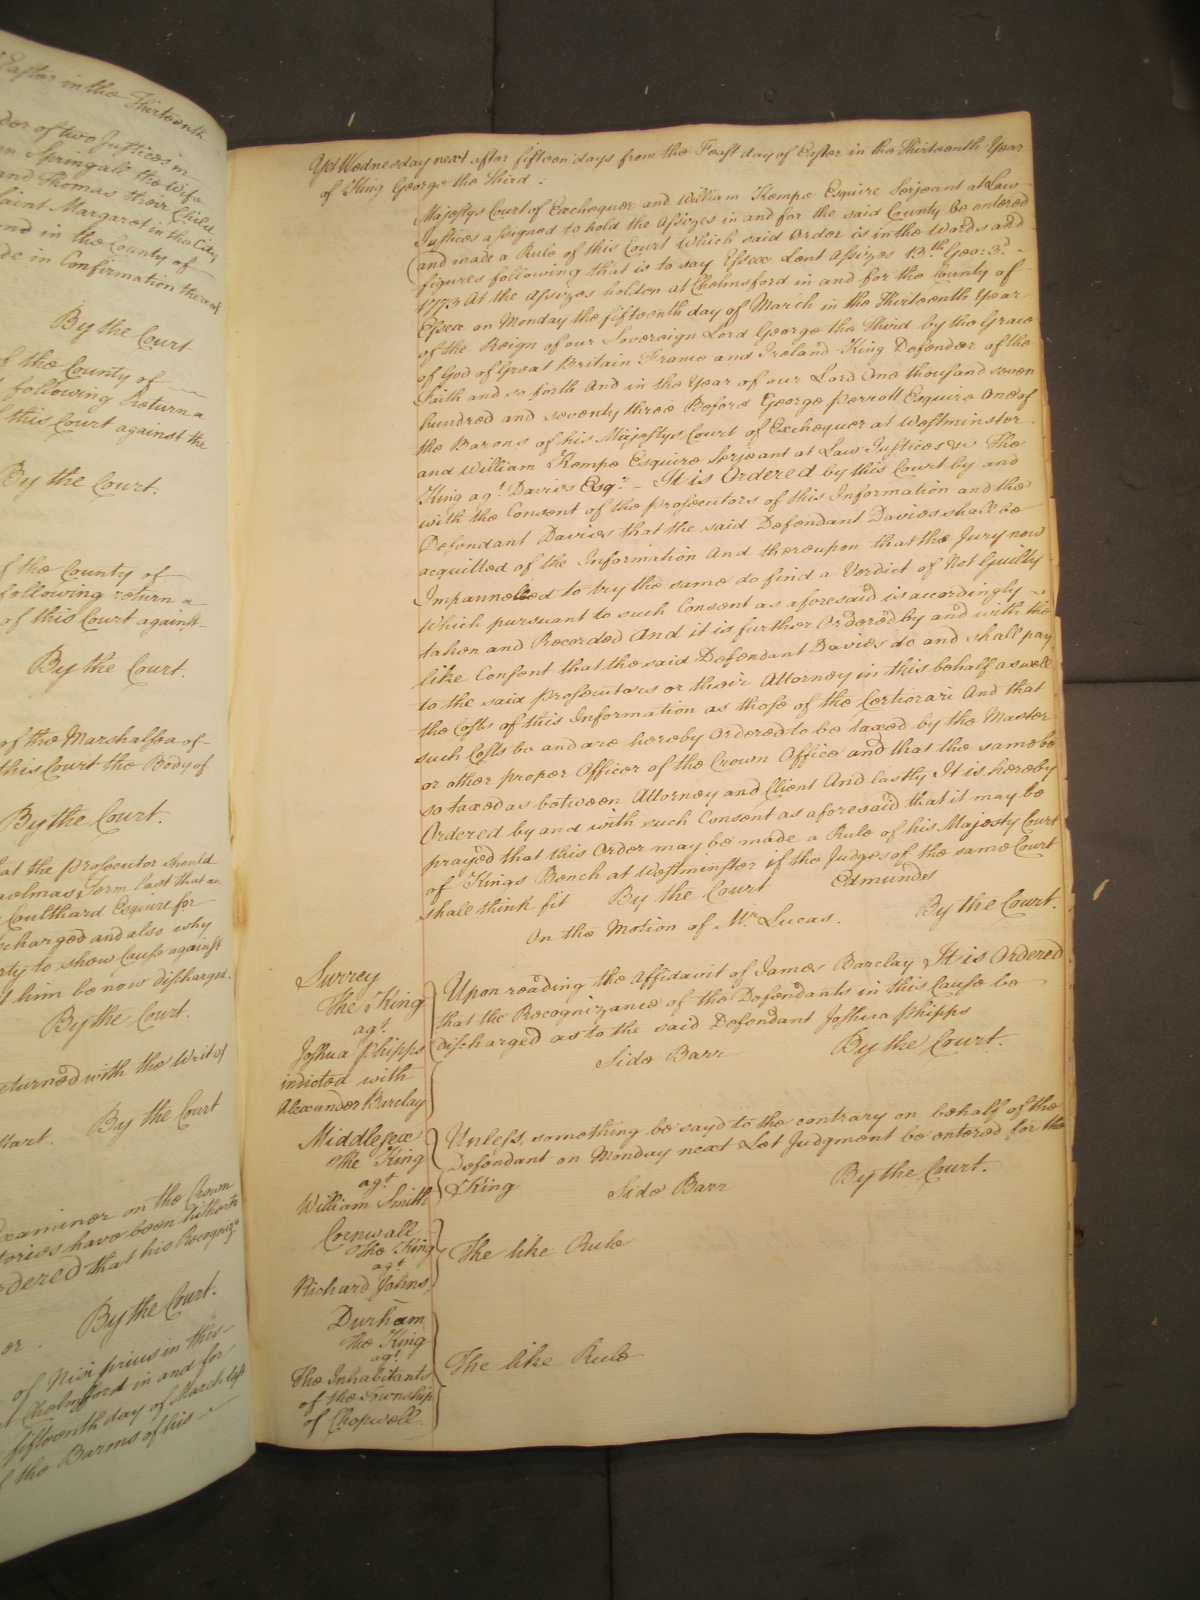 Easter in the Thirteenth
der of two Justices in
Springall the Wife
and Thomas their Child
Saint Margaret in the City
and in the County of
de in Confirmation thereof
By the Court
of the County of
following Return a
this Court against the
By the Court.
of the County of
following return a
of this Court against
By the Court.
of the Marshalsea of
this Court the Body of
By the Court.
at the Prosecutor should
aelmas Term last that an
Coulthard Esquire for
charged and also why
rty to shew Cause against
him be now discharged.
By the Court.
eturned with the Writ of
By the Court
xaminer on the Crown
tories have been hitherto
rdered that his Recogniz.e
or. By the Court.
of Nisi prius in this
Chelmsford in and for
fifteenth day of March last
of the Barons of his
Yet Wednesday next after fifteen days from the Feast day of Easter in the Thirteenth Year
of King George the Third.
Majestys Court of Exchequer and William Kempe Esquire Serjeant at Law
Justices assigned to hold the Assizes in and for the said County be entered
and made a Rule of this Court Which said Order is in the Words and
figures following that is to say Essex Lent Assizes 13th Geo: 3d
1773 At the Assizes holden at Chelmsford in and for the County of
Essex on Monday the fifteenth day of March in the Thirteenth Year
of the Reign of our Sovereign Lord George the Third by the Grace
of God of Great Britain France and Ireland King Defender of the
Faith and so forth And in the Year of our Lord One thousand seven
hundred and seventy three Before George Perrott Esquire One of
the Barons of his Majestys Court of Exchequer at Westminster
and William Kempe Esquire Serjeant at Law Justices &c The
King agt. Davies Esqr. - It is Ordered by this Court by and
with the Consent of the Prosecutors of this Information and the
Defendant Davies that the said Defendant Davies shall be
acquitted of the Information And thereupon that the Jury now
Impanneled to try the same do find a Verdict of Not Guilty
Which pursuant to such Consent as aforesaid is accordingly
taken and Recorded And it is further Ordered by and with the
like Consent that the said Defendant Davies do and shall pay
to the said Prosecutors or their Attorney in this behalf as well
the Costs of this Information as those of the Certiorari And that
such Costs be and are hereby Ordered to be taxed by the Master
or other proper Officer of the Crown Office and that the same be
so taxed as between Attorney and Client And lastly It is hereby
Ordered by and with such Consent as aforesaid that it may be
prayed that this Order may be made a Rule of his Majesty Court
of Kings Bench at Westminster if the Judges of the same Court
shall think fit By the Court Edmundes
On the Motion of Mr. Lucas. By the Court.
Surrey
The King
agt.
Joshua Phipps
indicted with
Alexander Barclay
Upon reading the Affidavit of James Barclay It is Ordered
that the Recognizance of the Defendants in this Cause be
discharged as to the said Defendant Joshua Phipps
Side Barr By the Court.
Middlesex
The King
agt
William Smith
Unless something be sayd to the contrary on behalf of the
Defendant on Monday next Let Judgment be entered for the
King Side Barr By the Court.
Cornwall
The King
agt
Richard Johns,
The like Rule
Durham
The King
agt.
The Inhabitants
of the Township
of Chopwell.
The like Rule